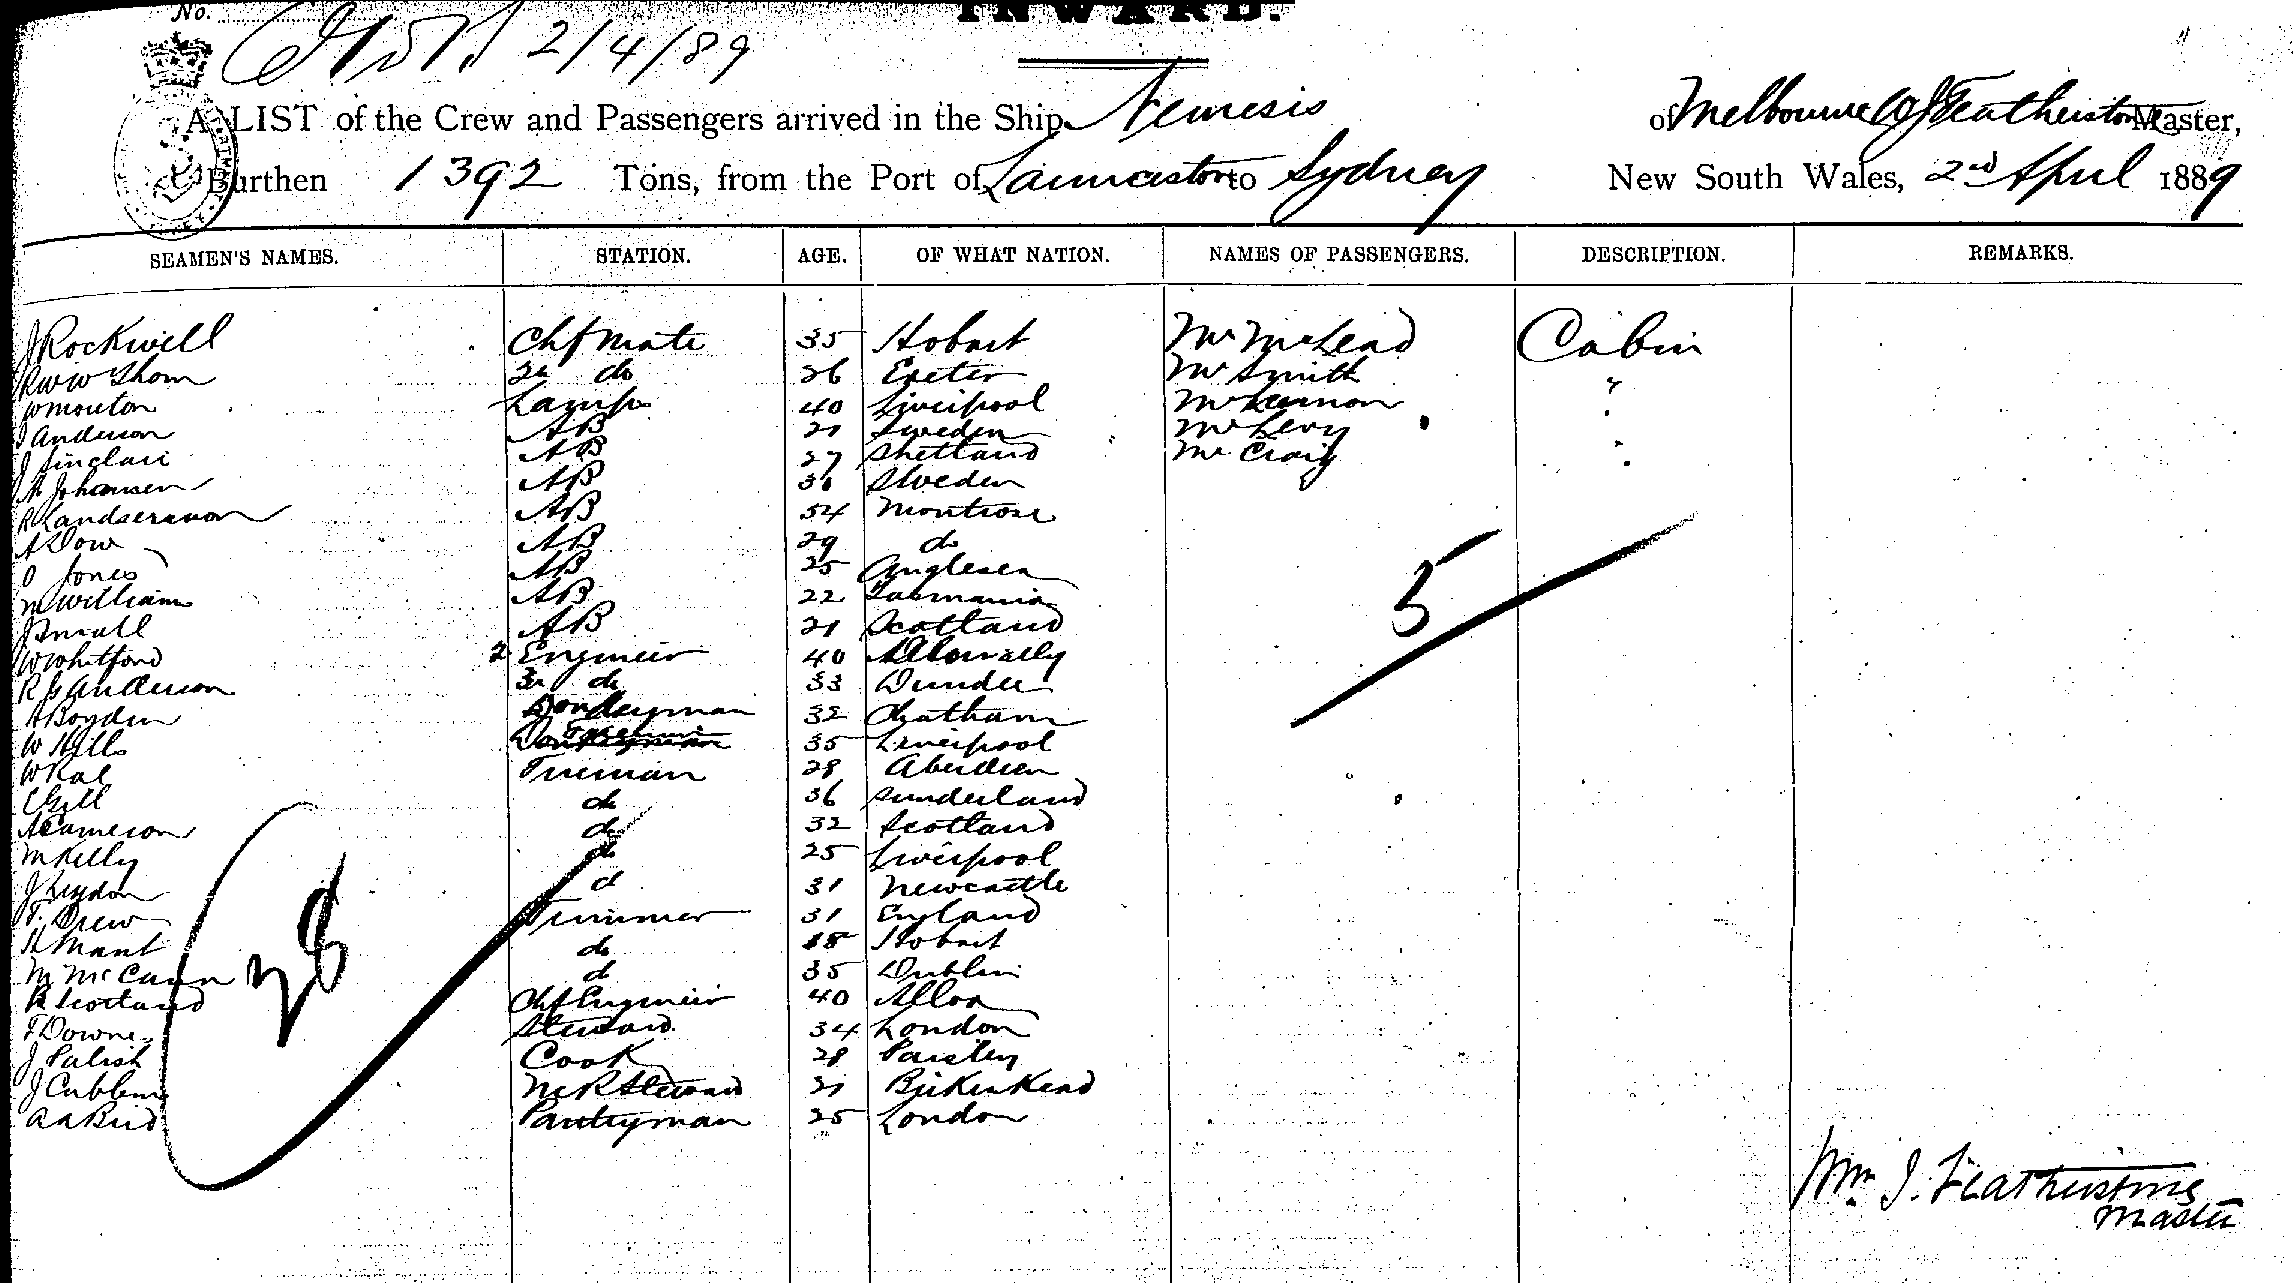 No.
INWARD.
2/4/89
A LIST of the Crew and Passengers arrived in the Ship Nemesis of Melbourne W J Featherstone Master,
Burthen 1392 Tons, from the Port of Launceston to Sydney New South Wales, 2nd April 1889
SEAMEN'S NAMES. STATION. AGE. OF WHAT NATION. NAMES OF PASSENGERS. DESCRIPTION. REMARKS.
J Rockwell Chf Mate 35 Hobart Mr McLeod Cabin
R W W Thom 2n do 26 Exeter Mr Smith "
W Mouton Lamps 40 Liverpool "
J Anderson AB 21 Sweden Mr Levy "
J Sinclair AB 27 Shetland Mr Craig "
A Johansen AB Sweden
AB 54 Montrose
A Dow AB 29 do
O Jones AB 25 Anglesea
M William AB 22 Tasmania
J AB 21 Scotland
W Whitford 2 Engineer 40
R J Anderson 3n do 33 Dundee
A Boydin Donkeyman 32 Chatham
W Hills 35 Liverpool
W Rae Fireman 28 Aberdeen
C Gill do 36 Sunderland
A Cameron do 32 Scotland
M Kelly do 25 Liverpool
J Leydon d 31 Newcastle
T. Drew Trimmer 31 England
H Mant do 18 Hobart
M McCann d 35 Dublin
R Scotland Chf Engineer 40 Alloa
F Downes Steward 34 London
J Palish Cook 28 Paisley
J Cubbins Steward 21 Birkenhead
A A Bird Pantryman 25 London
28
5
Wm J. Featherstone
Master